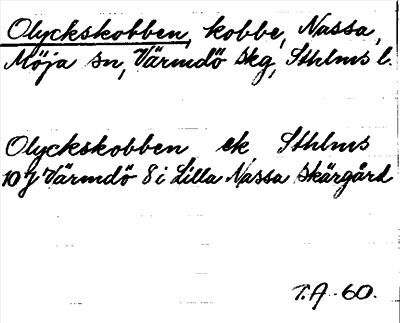 Olyckskobben, kobbe, Nassa,
Möja sn, Värmdö skg, Sthlms l.
Olyckskobben ek Sthlms
10J Värmdö 8 i Lilla Nassa Skärgård
T.A. 60.